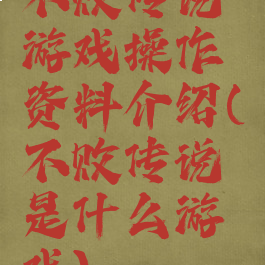 不败传说
游戏操作
资料介绍(
不败传说
是什么游
戏)